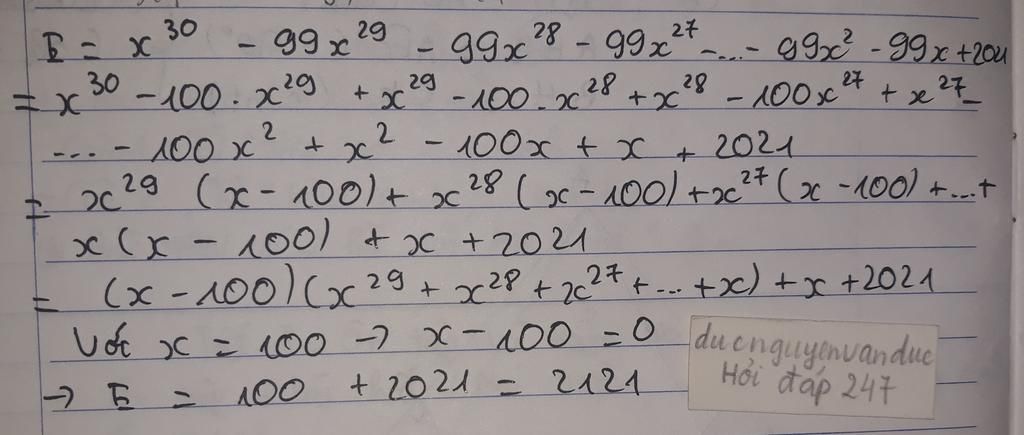 E = x^30 - 99x^29 - 99x^28 - 99x^27 - ... - 99x^2 - 99x + 2021
= x^30 - 100 . x^29 + x^29 - 100 . x^28 + x^28 - 100x^27 + x^27 -
... - 100x^2 + x^2 - 100x + x + 2021
= x^29 (x - 100) + x^28 (x - 100) + x^27 (x - 100) + ... +
x (x - 100) + x + 2021
= (x - 100) (x^29 + x^28 + x^27 + ... + x) + x + 2021
Với x = 100 → x - 100 = 0
→ E = 100 + 2021 = 2121
ducnguyenvanduc
Hỏi đáp 247